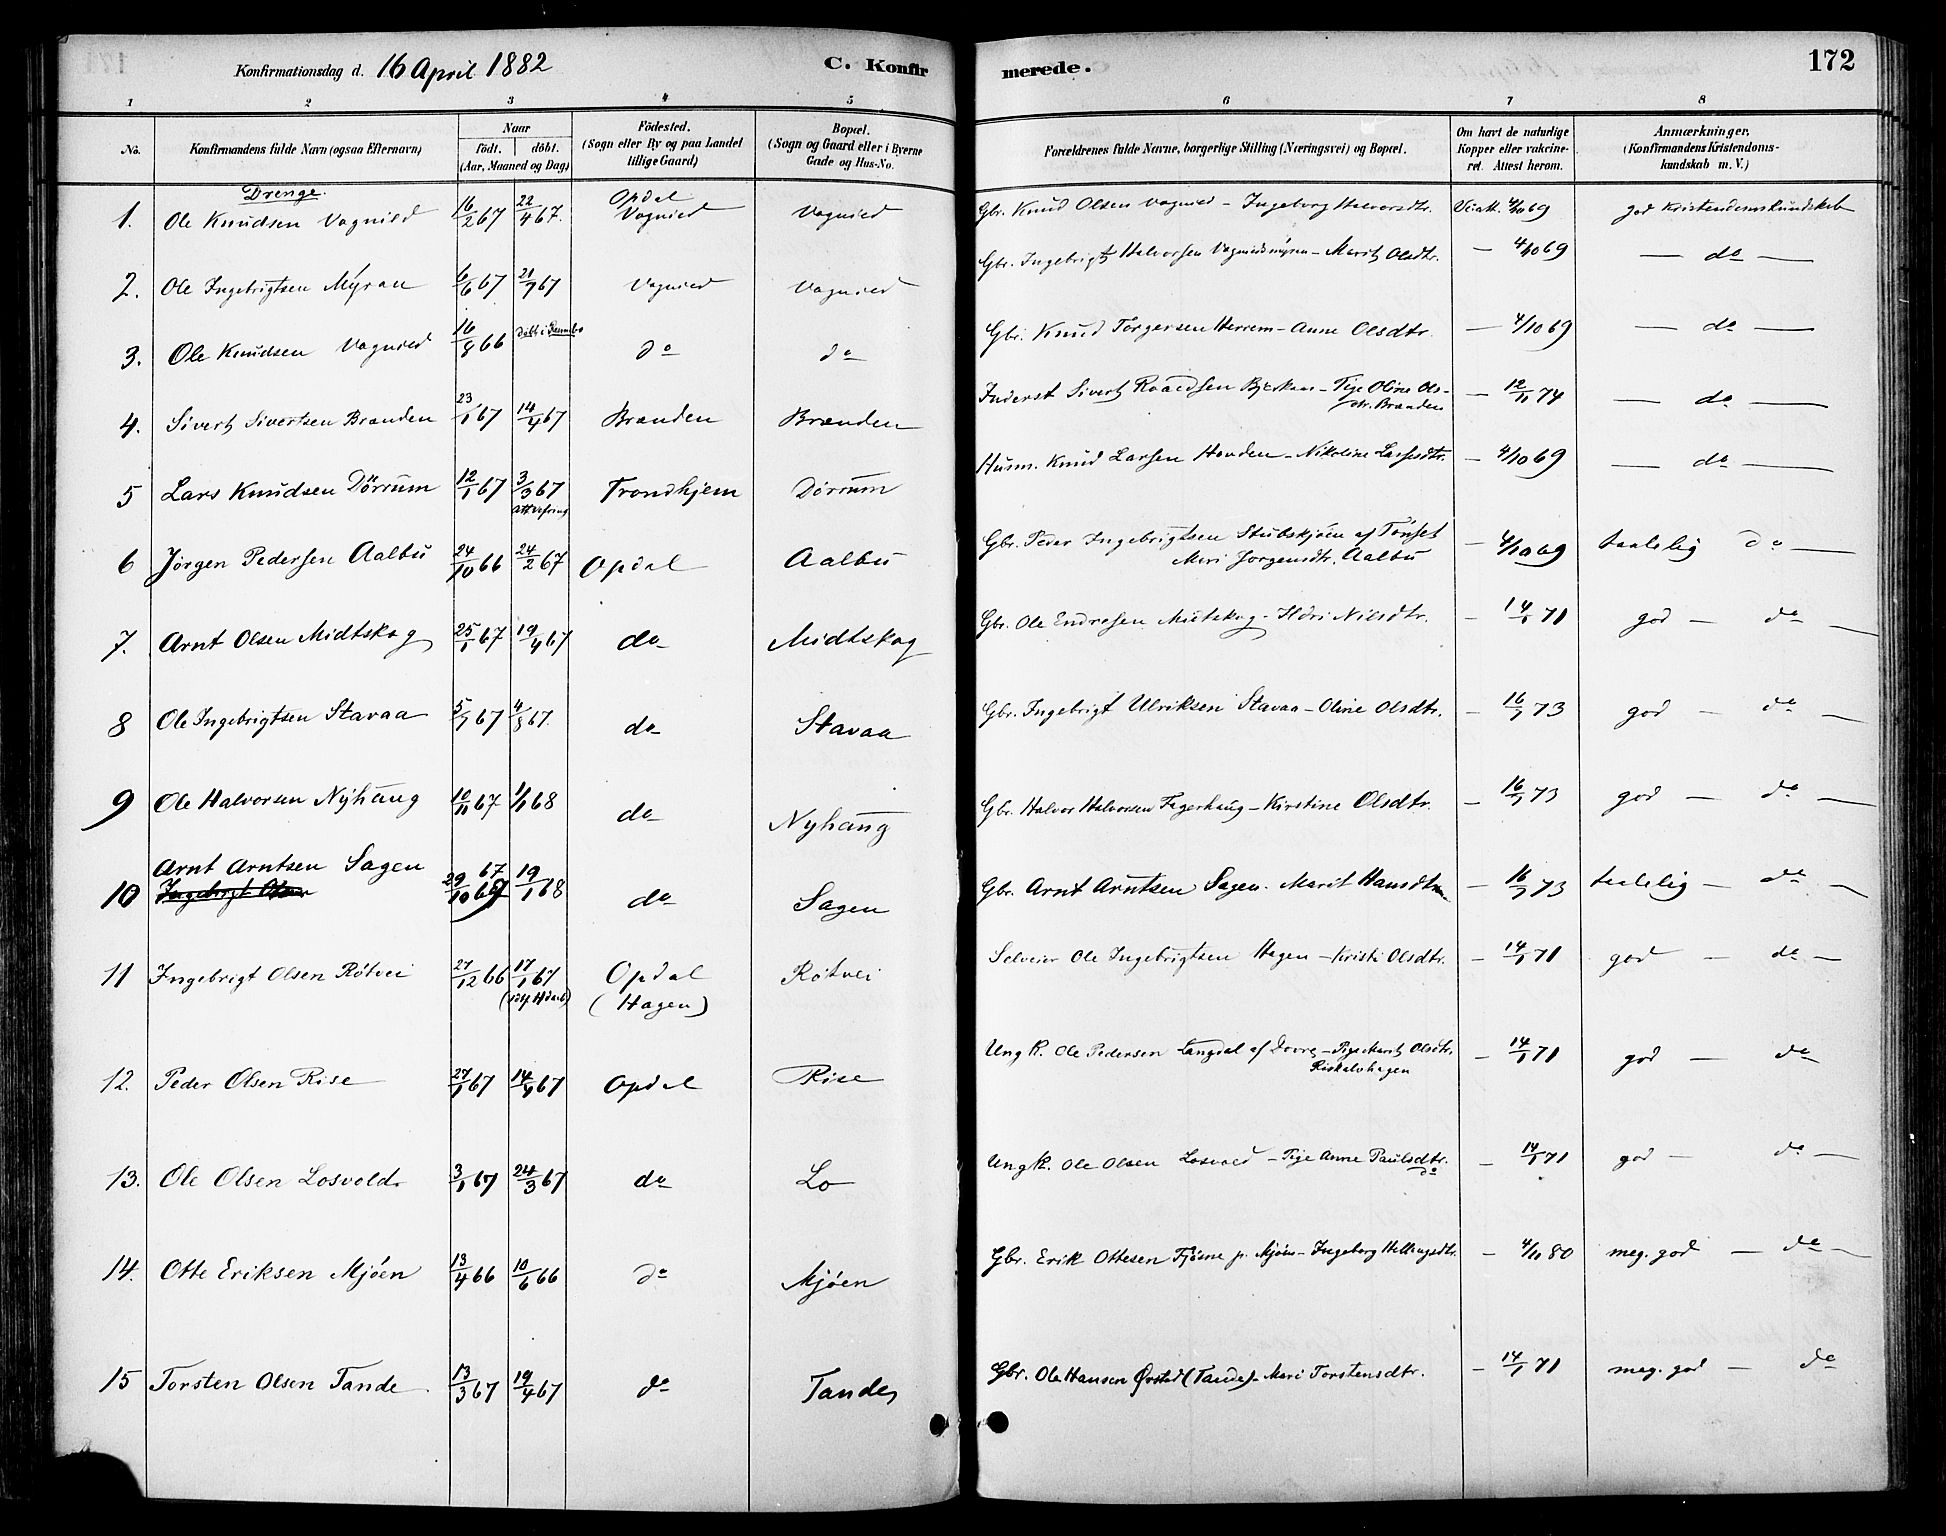 Konfirmationsdag d. 16 April 1882 C. Konfirmerede. 172
1 2 3 4 5 6 7 8
No. Konfirmandens fulde Navn (ogsaa Efternavn) Naar födt. döbt. (Aar, Maaned og Dag) Födested. (Sogn eller By og paa Landet tillige Gaard) Bopæl. (Sogn og Gaard eller i Byerne Gade og Hus-No. Forældrenes fulde Navne, borgerlige Stilling (Næringsvei) og Bopæl. Om havt de naturlige Kopper eller vakcineret. Attest herom. Anmærkninger. (Konfirmandens Kristendomskundskab m. V.)
Drenge.
1. Ole Knudsen Vognild 16/2 67 22/4 67. Opdal Vognild Vognild Gbr. Knud Olsen Vognild - Ingeborg Halvorsdtr. Viatt. 4/10 69 god Kristendomskundskab
2. Ole Ingebrigtsen Myran 6/6 67 21/7 67 Vognild Vognild Gbr. Ingebrigt Halvorsen Vognildsmyran - Marit Olsdtr. — 4/10 69 — do —
3. Ole Knudsen Vognild 16/8 66 do do Gbr. Knud Torgersen Herrem - Anne Olsdtr. — 4/10 69 — do —
4. Sivert Sivertsen Brænden 23/1 67 14/4 67 Brænden Brænden Inderst Sivert Roaldsen Bjerkaas - Pige Oline Olsdtr. Brænden — 12/11 74 — do —
5 Lars Knudsen Dörrum 12/1 67 3/3 67 Trondhjem Dörrum Husm. Knud Larsen Honden - Nikoline Larsdtr. — 4/10 69 — do —
6 Jörgen Pedersen Aalbu 24/10 66 24/2 67 Opdal Aalbu Gbr. Peder Ingebrigtsen Stubskjøien af Tönset
Meri Jorgensdtr. Aalbu — 4/10 69 taalelig do —
7. Arnt Olsen Midtskog 25/1 67 19/4 67 do Midtskog Gbr. Ole Endresen Midtskog - Ildri Nilsdtr. — 14/1 71 god — do —
8 Ole Ingebrigtsen Stavaa 5/7 67 4/8 67. do Stavaa Gbr. Ingebrigt Ulriksen Stavaa - Oline Olsdtr. — 16/7 73 god — do —
9 Ole Halvorsen Nyhaug 10/11 67 1/1 68 do Nyhaug Gbr. Halvor Halvorsen Fagerhaug - Kirstine Olsdtr. — 16/7 73 god — do —
10 Arnt Arntsen Sagen 29/10 67 19/1 68 do Sagen Gbr. Arnt Arntsen Sagen. Marit Hansdtr — 16/7 73 taalelig — do —
Ingebrigt Olsen
11 Ingebrigt Olsen Rötvei 27/12 66 17/1 67 Opdal (Hagen) Rötvei Selveier Ole Ingebrigtsen Hagen - Kristi Olsdtr. — 14/1 71 god — do —
12. Peder Olsen Rise 27/1 67 14/4 67 Opdal Rise Ung K. Ole Pedersen Langdal af Dovre - Pige Marit Olsdtr. — 14/1 71 god — do
13. Ole Olsen Losvold 3/1 67 24/3 67 do Lo Ung K. Ole Olsen Losvold - Pige Anne Paulsdtr. do — 14/1 71 god — do —
14. Otte Eriksen Mjöen 13/4 66 10/6 66 do Mjöen Gbr. Erik Ottesen Fjösne p. Mjöen - Ingeborg Hellingsdtr. — 4/11 80 meg. god — do —
15 Torsten Olsen Tande 13/3 67 19/4 67 do Tande Gbr. Ole Hansen Ørstad (Tande) - Meri Torstensdtr. — 14/1 71 meg. god — do